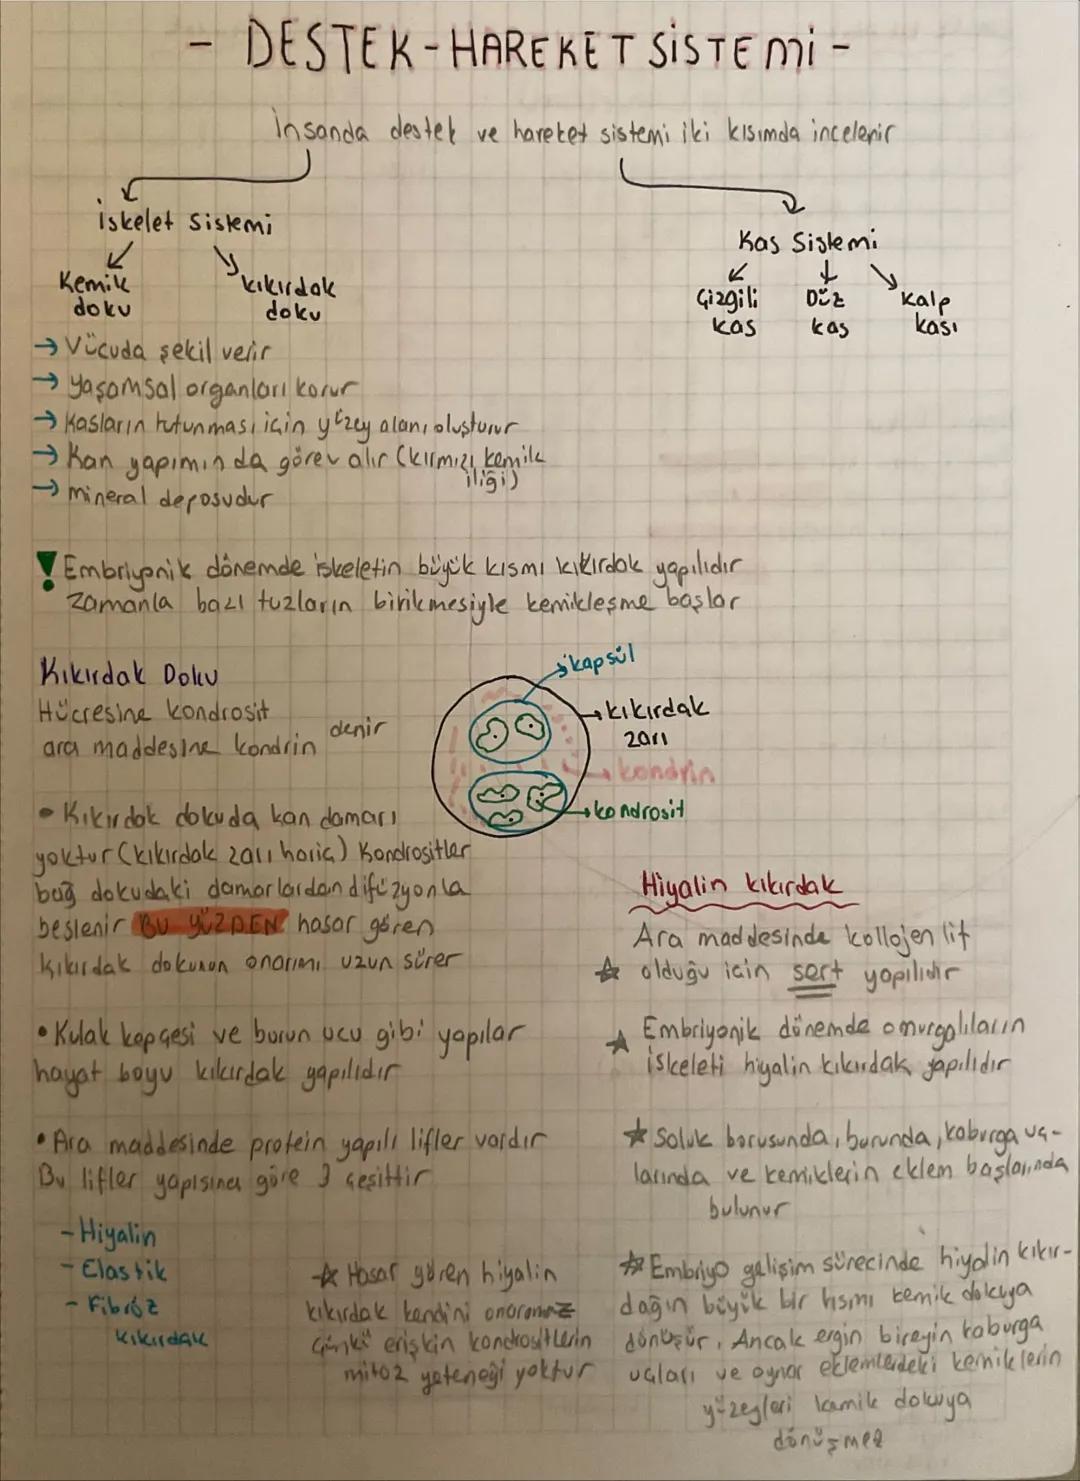 - DESTEK-HAREKET SİSTEMİ -
İnsanda destek ve hareket sistemi iki kısımda incelenir
İskelet Sistemi
Kemik doku
kıkırdak doku
Kas Sistemi
Çizgili kas
Düz kas
Kalp kası
→ Vücuda şekil verir
→ yaşamsal organları korur
→ Kasların tutunması için yüzey alanı oluşturur
→ Kan yapımında görev alır (kırmızı kemik
iliği)
→ mineral deposudur
! Embriyonik dönemde iskeletin büyük kısmı kıkırdak yapılıdır
Zamanla bazı tuzların birikmesiyle kemikleşme başlar
Kıkırdak Doku
Hücresine kondrosit
ara maddesine kondrin denir
kapsül
kıkırdak
zarı
kondrin
kondrosit
• Kıkırdak dokuda kan damarı
yoktur (kıkırdak zarı hariç) Kondrositler
bağ dokudaki damarlardan difüzyonla
beslenir BU YÜZDEN hasar gören
kıkırdak dokunun onarımı uzun sürer
• Kulak kepçesi ve burun ucu gibi yapılar
hayat boyu kıkırdak yapılıdır
• Ara maddesinde protein yapılı lifler vardır
Bu lifler yapısına göre 3 çeşittir
- Hiyalin
- Elastik
- Fibröz
kıkırdak
Hiyalin kıkırdak
Ara maddesinde kollojen lif
☆ olduğu için sert yapılıdır
☆ Embriyonik dönemde omurgalıların
iskeleti hiyalin kıkırdak yapılıdır
☆ Soluk borusunda, burunda, kaburga uç-
larında ve kemiklerin eklem başlarında
bulunur
☆ Embriyo gelişim sürecinde hiyalin kıkır-
dağın büyük bir kısmı kemik dokuya
dönüşür. Ancak ergin bireyin kaburga
uçları ve oynar eklemlerdeki kemiklerin
yüzeyleri kemik dokuya
dönüşmez
☆ Hasar gören hiyalin
kıkırdak kendini onaramaz
çünkü erişkin kondrositlerin
mitoz yeteneği yoktur